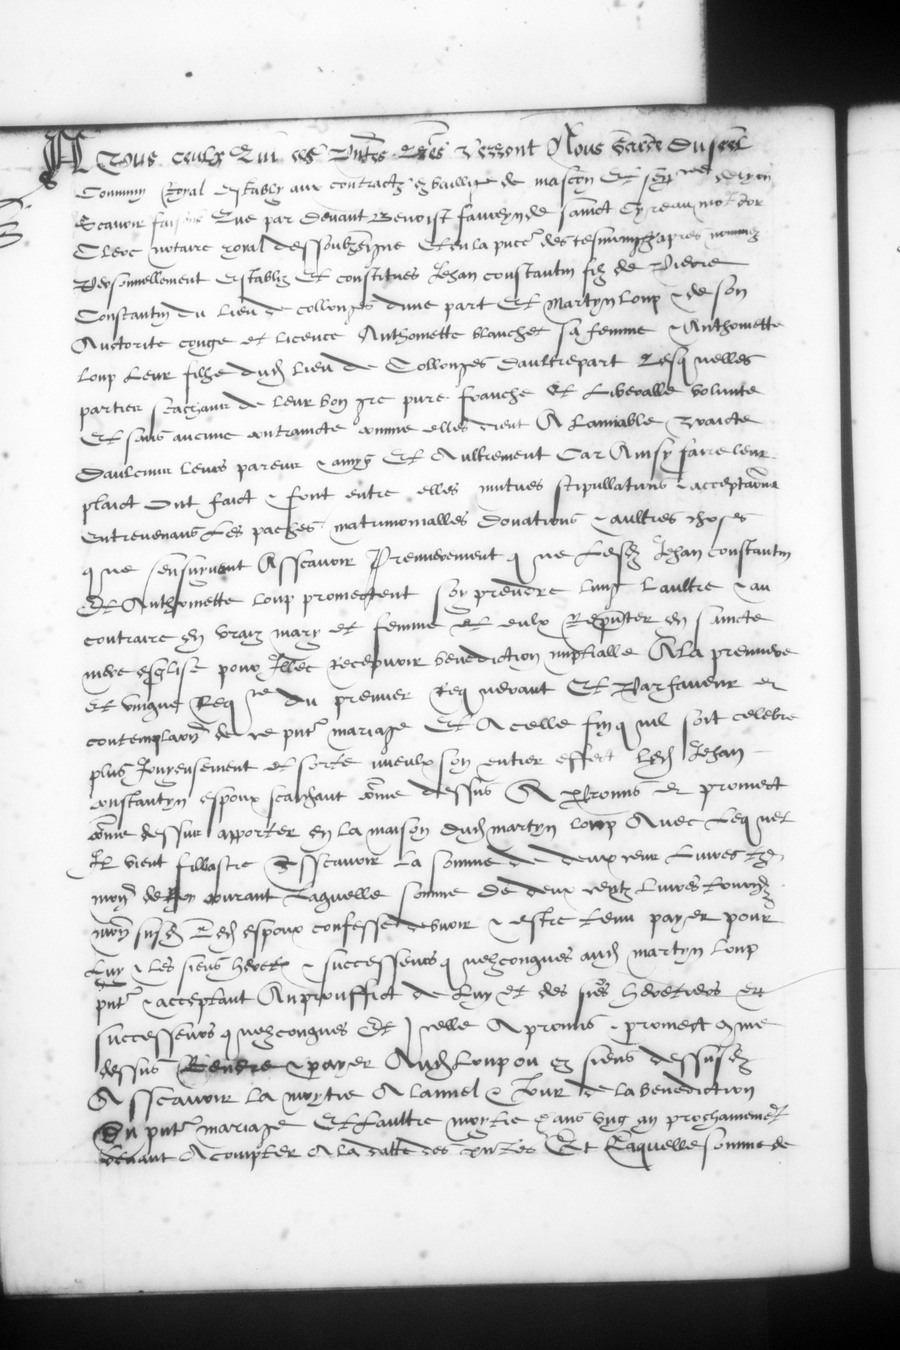 A Tous ceulx Qui ces Pntes Lres Verront Nous Garde Du scel
Commun Royal estably aux contractz es bailliage de mascon Et sen
Scavoir faisons Que par Devant Benoist fauveyn de sainct Cyre au mot dor
Clerc notaire royal dessoubzsigne Et en la pnce des tesmoingz apres nommez
Personnellement Establiz Et constitues Jehan constantin filz de Pierre
Constantin du Lieu de collonges dune part Et Martyn Loup & de son
Auctorite conge et licence Anthomette blanchet sa femme & Anthomette
Loup Leur fille dud Lieu de Collonges Daultrepart Lesquelles
parties scachant de Leur bon gre pure franche Et Liberalle volunte
Et sans aucune contraincte comme elles dient A Lamiable traicte
Daulcuns Leurs parens & amys Et Aultrement Car Ainsy faire leur
plaict Ont faict & font entre elles mutues stipullations & acceptaons
entrevenans Les paches matrimonialles Donations & aultres choses
que sensuyvent Asscavoir Premierement que Lesd Jehan constantin
Et Anthomette Loup promectent soy prendre lung Laultre & au
contraire en vraiz mary et femme et eulx Repputer en saincte
mere esglise pour Illec Recepvoir benediction nuptialle A La premiere
et unique Reqte du premier Requerant Et Par faveur et
contemplaon de ce pnt mariage Et A celle fin quil soit celebre
plus Jouyeusement et sorte mieulx son entier effect Led Jehan
constantyn espoux scaichant come dessus A promis et promect
come dessus apporter en La maison dud martyn Loup Avec Lequel
Il vient fillastre Asscavoir La somme de deux cens Livres tz
mon de Roy courant Laquelle somme de deux centz Livres tournz
mon susd Led espoux confesse debvoir & estre tenu payer pour
Luy & Les siens hers & successeurs quelzconques aud martyn Loup
pnt & acceptant Au prouffict de Luy et des siens heretiers et
successeurs quelzconques Et Icelle A promis & promect come
dessus Rendre & payer Aud Loup ou es siens dessusd
Asscavoir La moytie A Lannel & Jour de La benediction
Du pnt mariage Et Laultre moytie dans ung an prochainemet
venant A compter A La datte des pntes Et Laquelle somme de